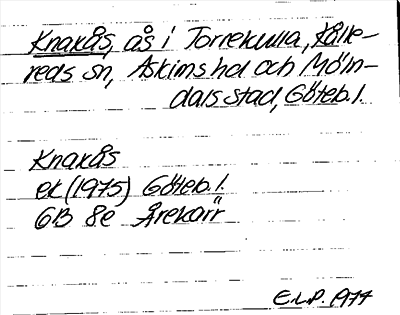 Knaxås, ås i Torrekulla, Kålle-
reds sn, Askims hd och Möln-
dals stad, Göteb. l.
Knaxås
ek (1975) Göteb. l.
6B 8e Årekärr
E.L.P. 1977